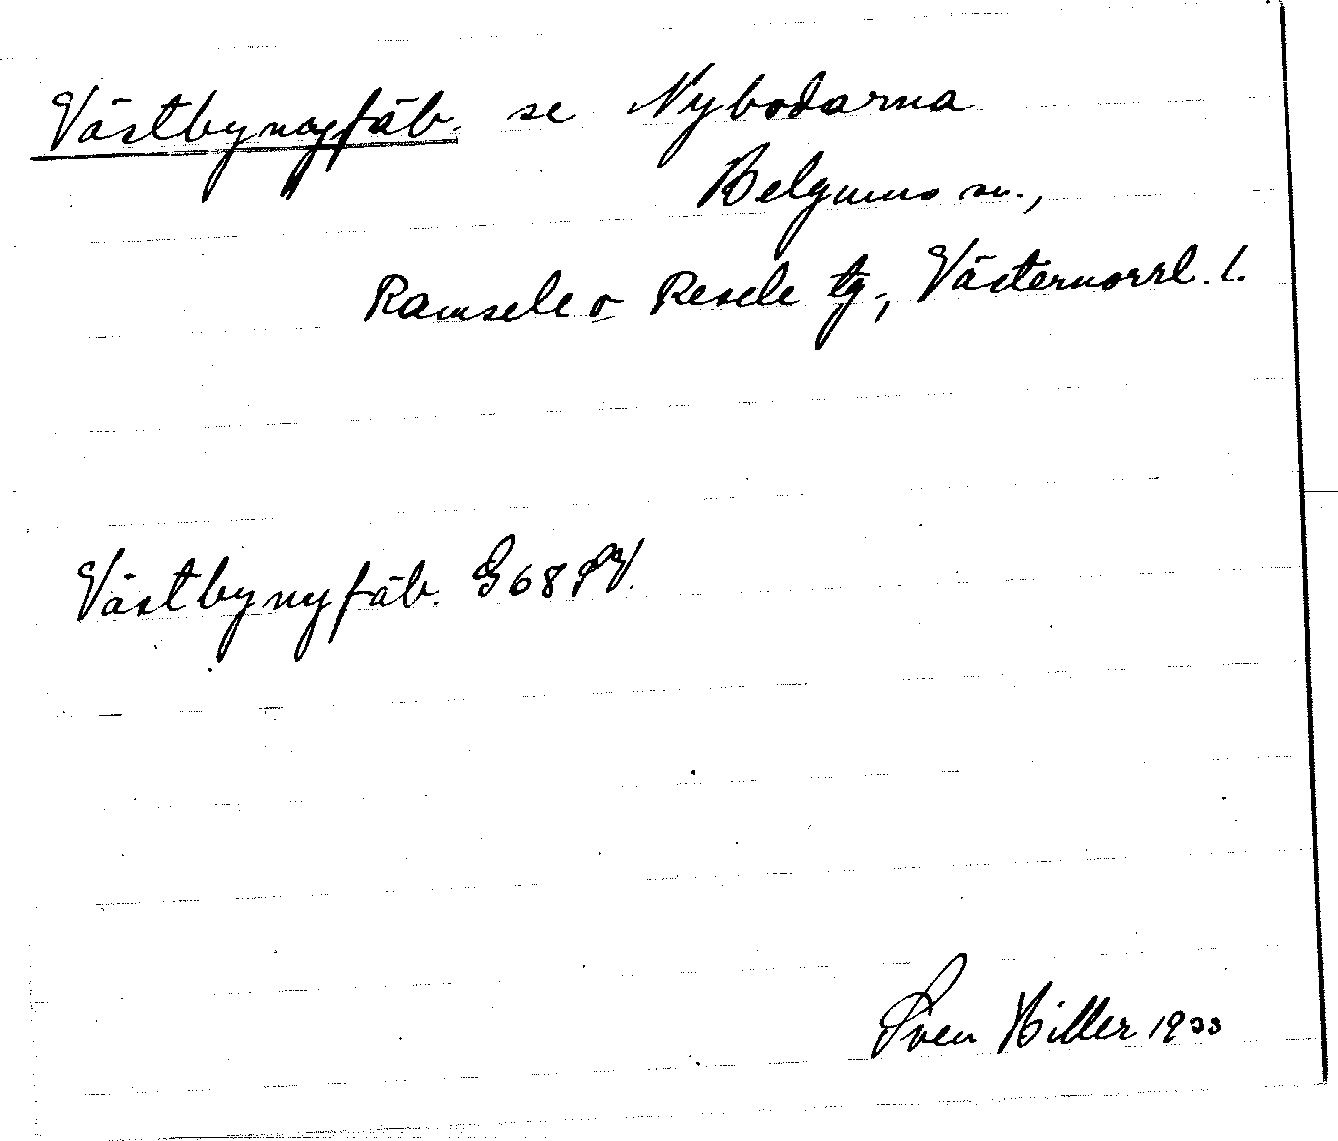 Västbynyfäb. se Nybodarna
Helgums sn.,
Ramsele o Resele tg., Västernorrl. l.
Västbynyfäb. G68SV.
Sven Hiller 1933